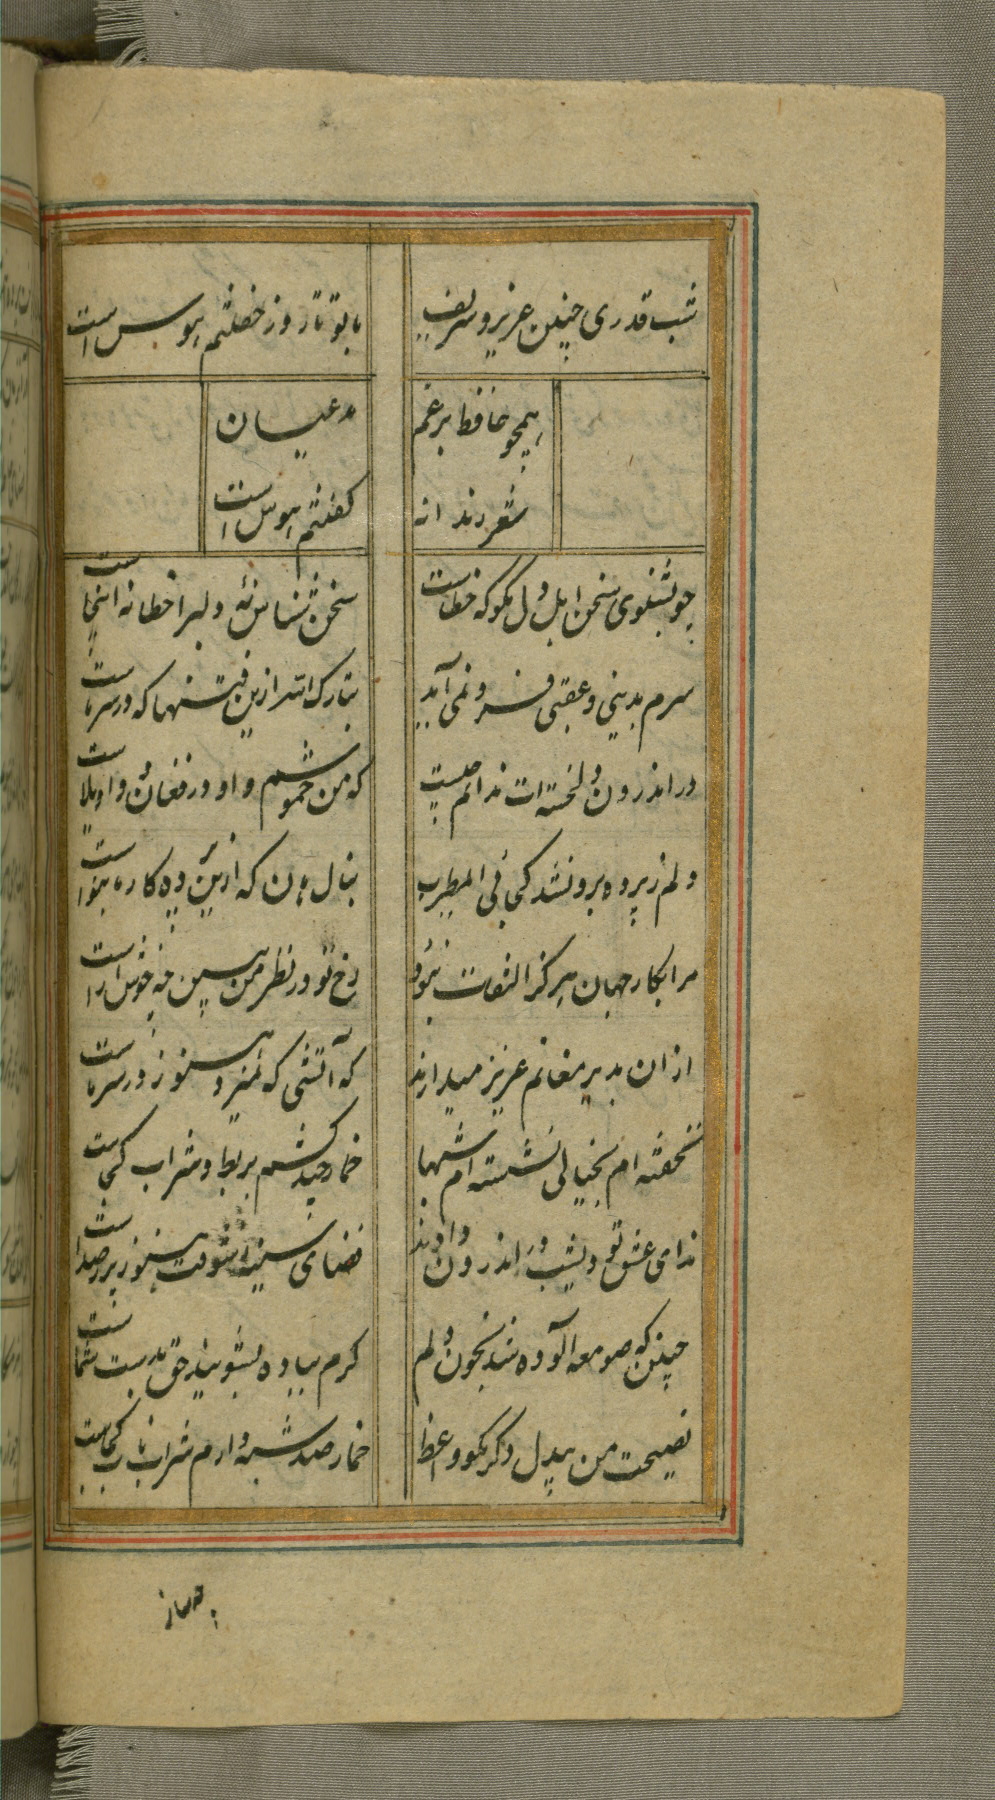 شب قدری چنین عزیز و شریف
با تو تا روز خفتنم هوس است
همچو حافظ برغم
مدعیان
شعر رندانه
گفتنم هوس است
چو بشنوی سخن اهل دل مگو که خطاست
سخن شناس نهٔ دلبرا خطا نه اینجاست
سرم بدینی و عقبی فرو نمی آید
تبارک الله ازین فتنها که در سر ماست
در اندرون دلخسته ات ندانم چیست
که من خموشم و او در فغان و واویلاست
دلم ز پرده برون شد کجائی ای مطرب
بنال هان که ازین پرده کار ما بنواست
مرا بکار جهان هرگز التفات نبود
رخ تو در نظر من چنین چه خوش آراست
از آن بدیر مغانم عزیز میدارند
که آتشی که نمیرد هنوز در سر ماست
نخفته ام بخیالی نشسته ام شبها
خمار چند کشم بربط و شراب کجاست
ندای عشق تو دیشب در اندرون دادند
فضای سینه ز شوقت هنوز پر صداست
چنین که صومعه آلوده شد بخون دلم
گرم بباده بشوئید حق بدست شماست
نصیحت من بیدل دگر مگو واعظ
خمار صد شبه دارم شراب ناب کجاست
چه ساز